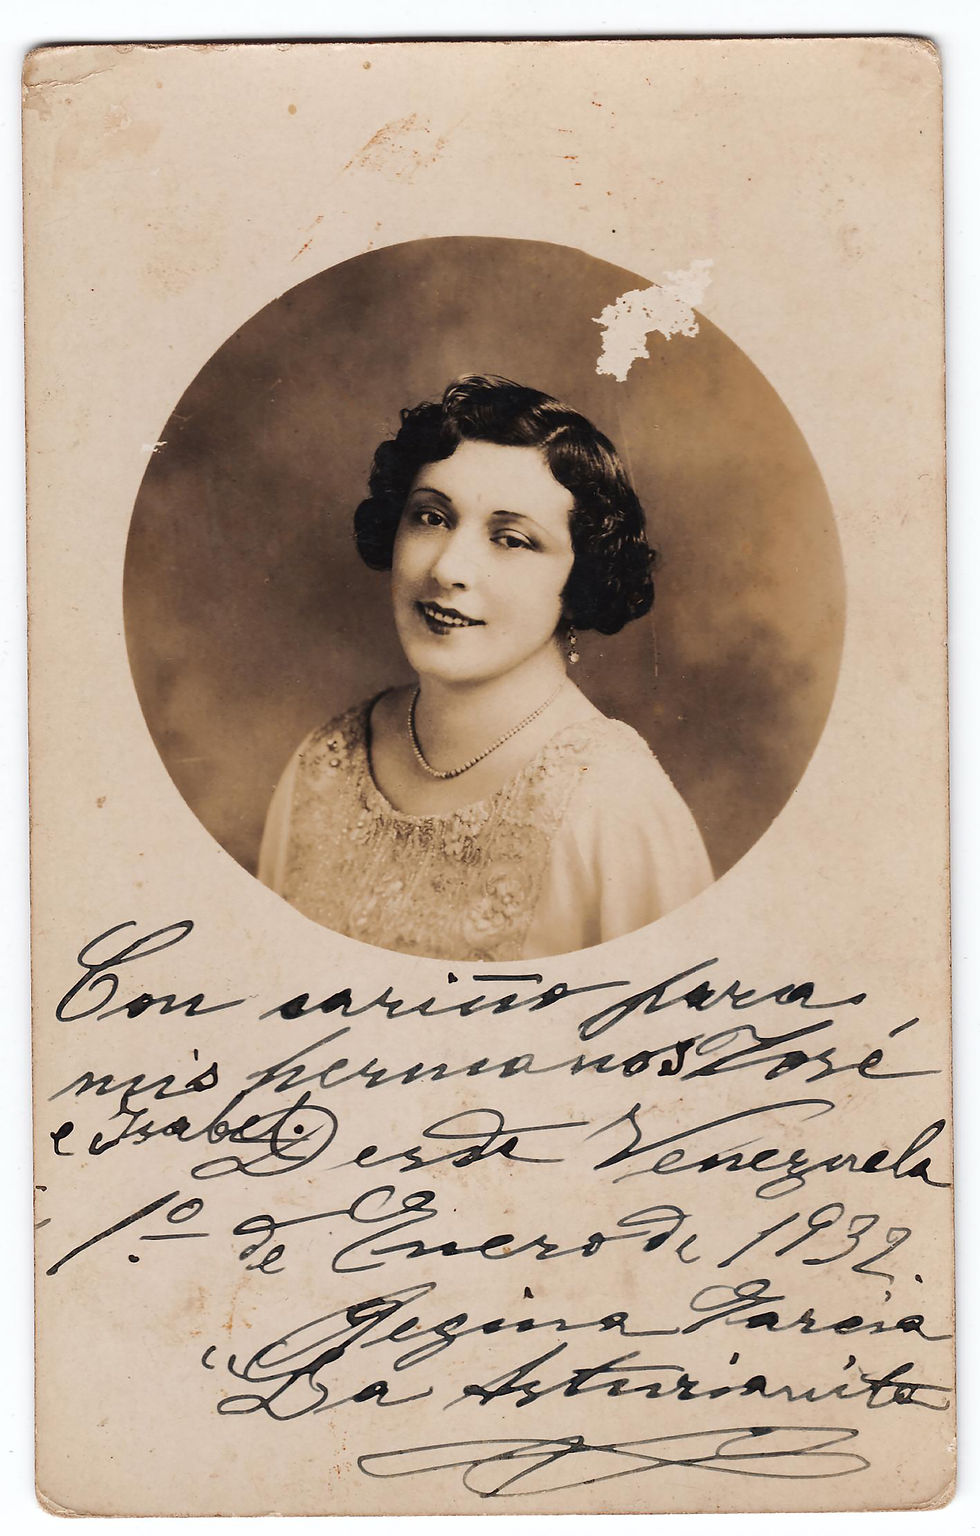 Con cariño para
mis hermanos José
e Isabel. Desde Venezuela
1º. de Enero de 1932.
Regina García
"La Asturianita